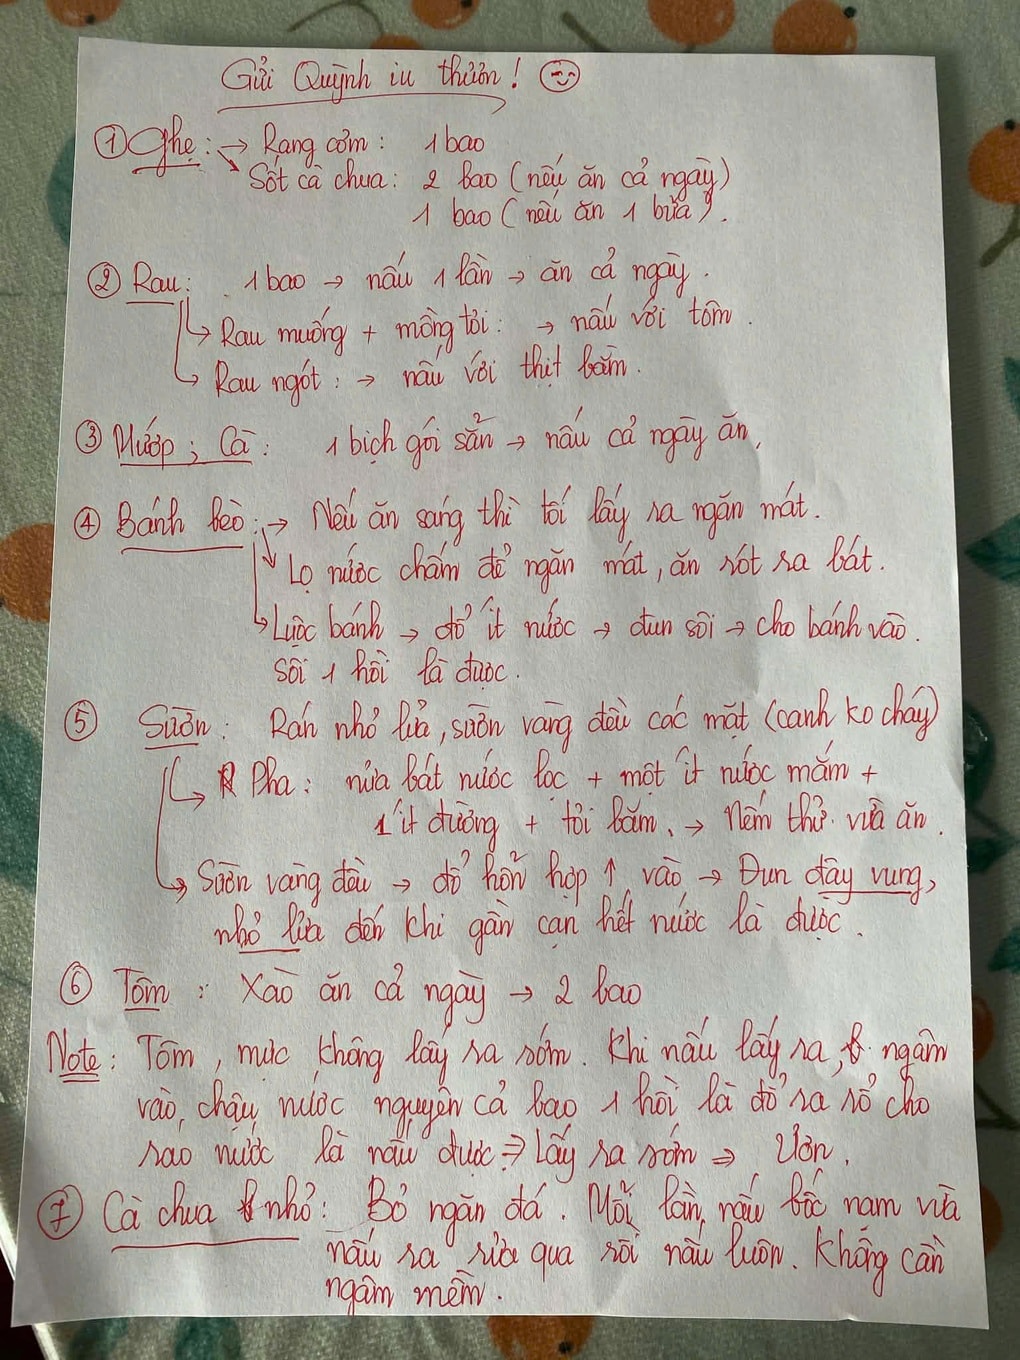 Gửi Quỳnh iu thưn!
① Ghẹ: → Rang cơm: 1 bao
Sốt cà chua: 2 bao (nếu ăn cả ngày)
1 bao (nếu ăn 1 bữa).
② Rau: 1 bao → nấu 1 lần → ăn cả ngày.
Rau muống + mồng tơi: → nấu với tôm.
Rau ngót: → nấu với thịt bằm.
③ Mướp; Cà: 1 bịch gói sẵn → nấu cả ngày ăn,
④ Bánh bèo: → Nếu ăn sáng thì tối lấy ra ngăn mát.
Lọ nước chấm để ngăn mát, ăn rót ra bát.
Luộc bánh → đổ ít nước → đun sôi → cho bánh vào.
Sôi 1 hồi là được.
⑤ Sườn: Rán nhỏ lửa, sườn vàng đều các mặt (canh ko cháy)
Pha: nửa bát nước lọc + một ít nước mắm +
1 ít đường + tỏi băm. → Nếm thử vừa ăn.
Sườn vàng đều → đổ hỗn hợp ↑ vào → Đun đậy vung,
nhỏ lửa đến khi gần cạn hết nước là được.
⑥ Tôm: Xào ăn cả ngày → 2 bao
Note: Tôm, mực không lấy ra sớm. Khi nấu lấy ra, ngâm
vào chậu nước nguyên cả bao 1 hồi là đổ ra rổ cho
ráo nước là nấu được ⇒ Lấy ra sớm ⇒ Ươn.
⑦ Cà chua nhỏ: Bỏ ngăn đá. Mỗi lần nấu bốc nam vừa
nấu ra rửa qua rồi nấu luôn. Không cần
ngâm mềm.